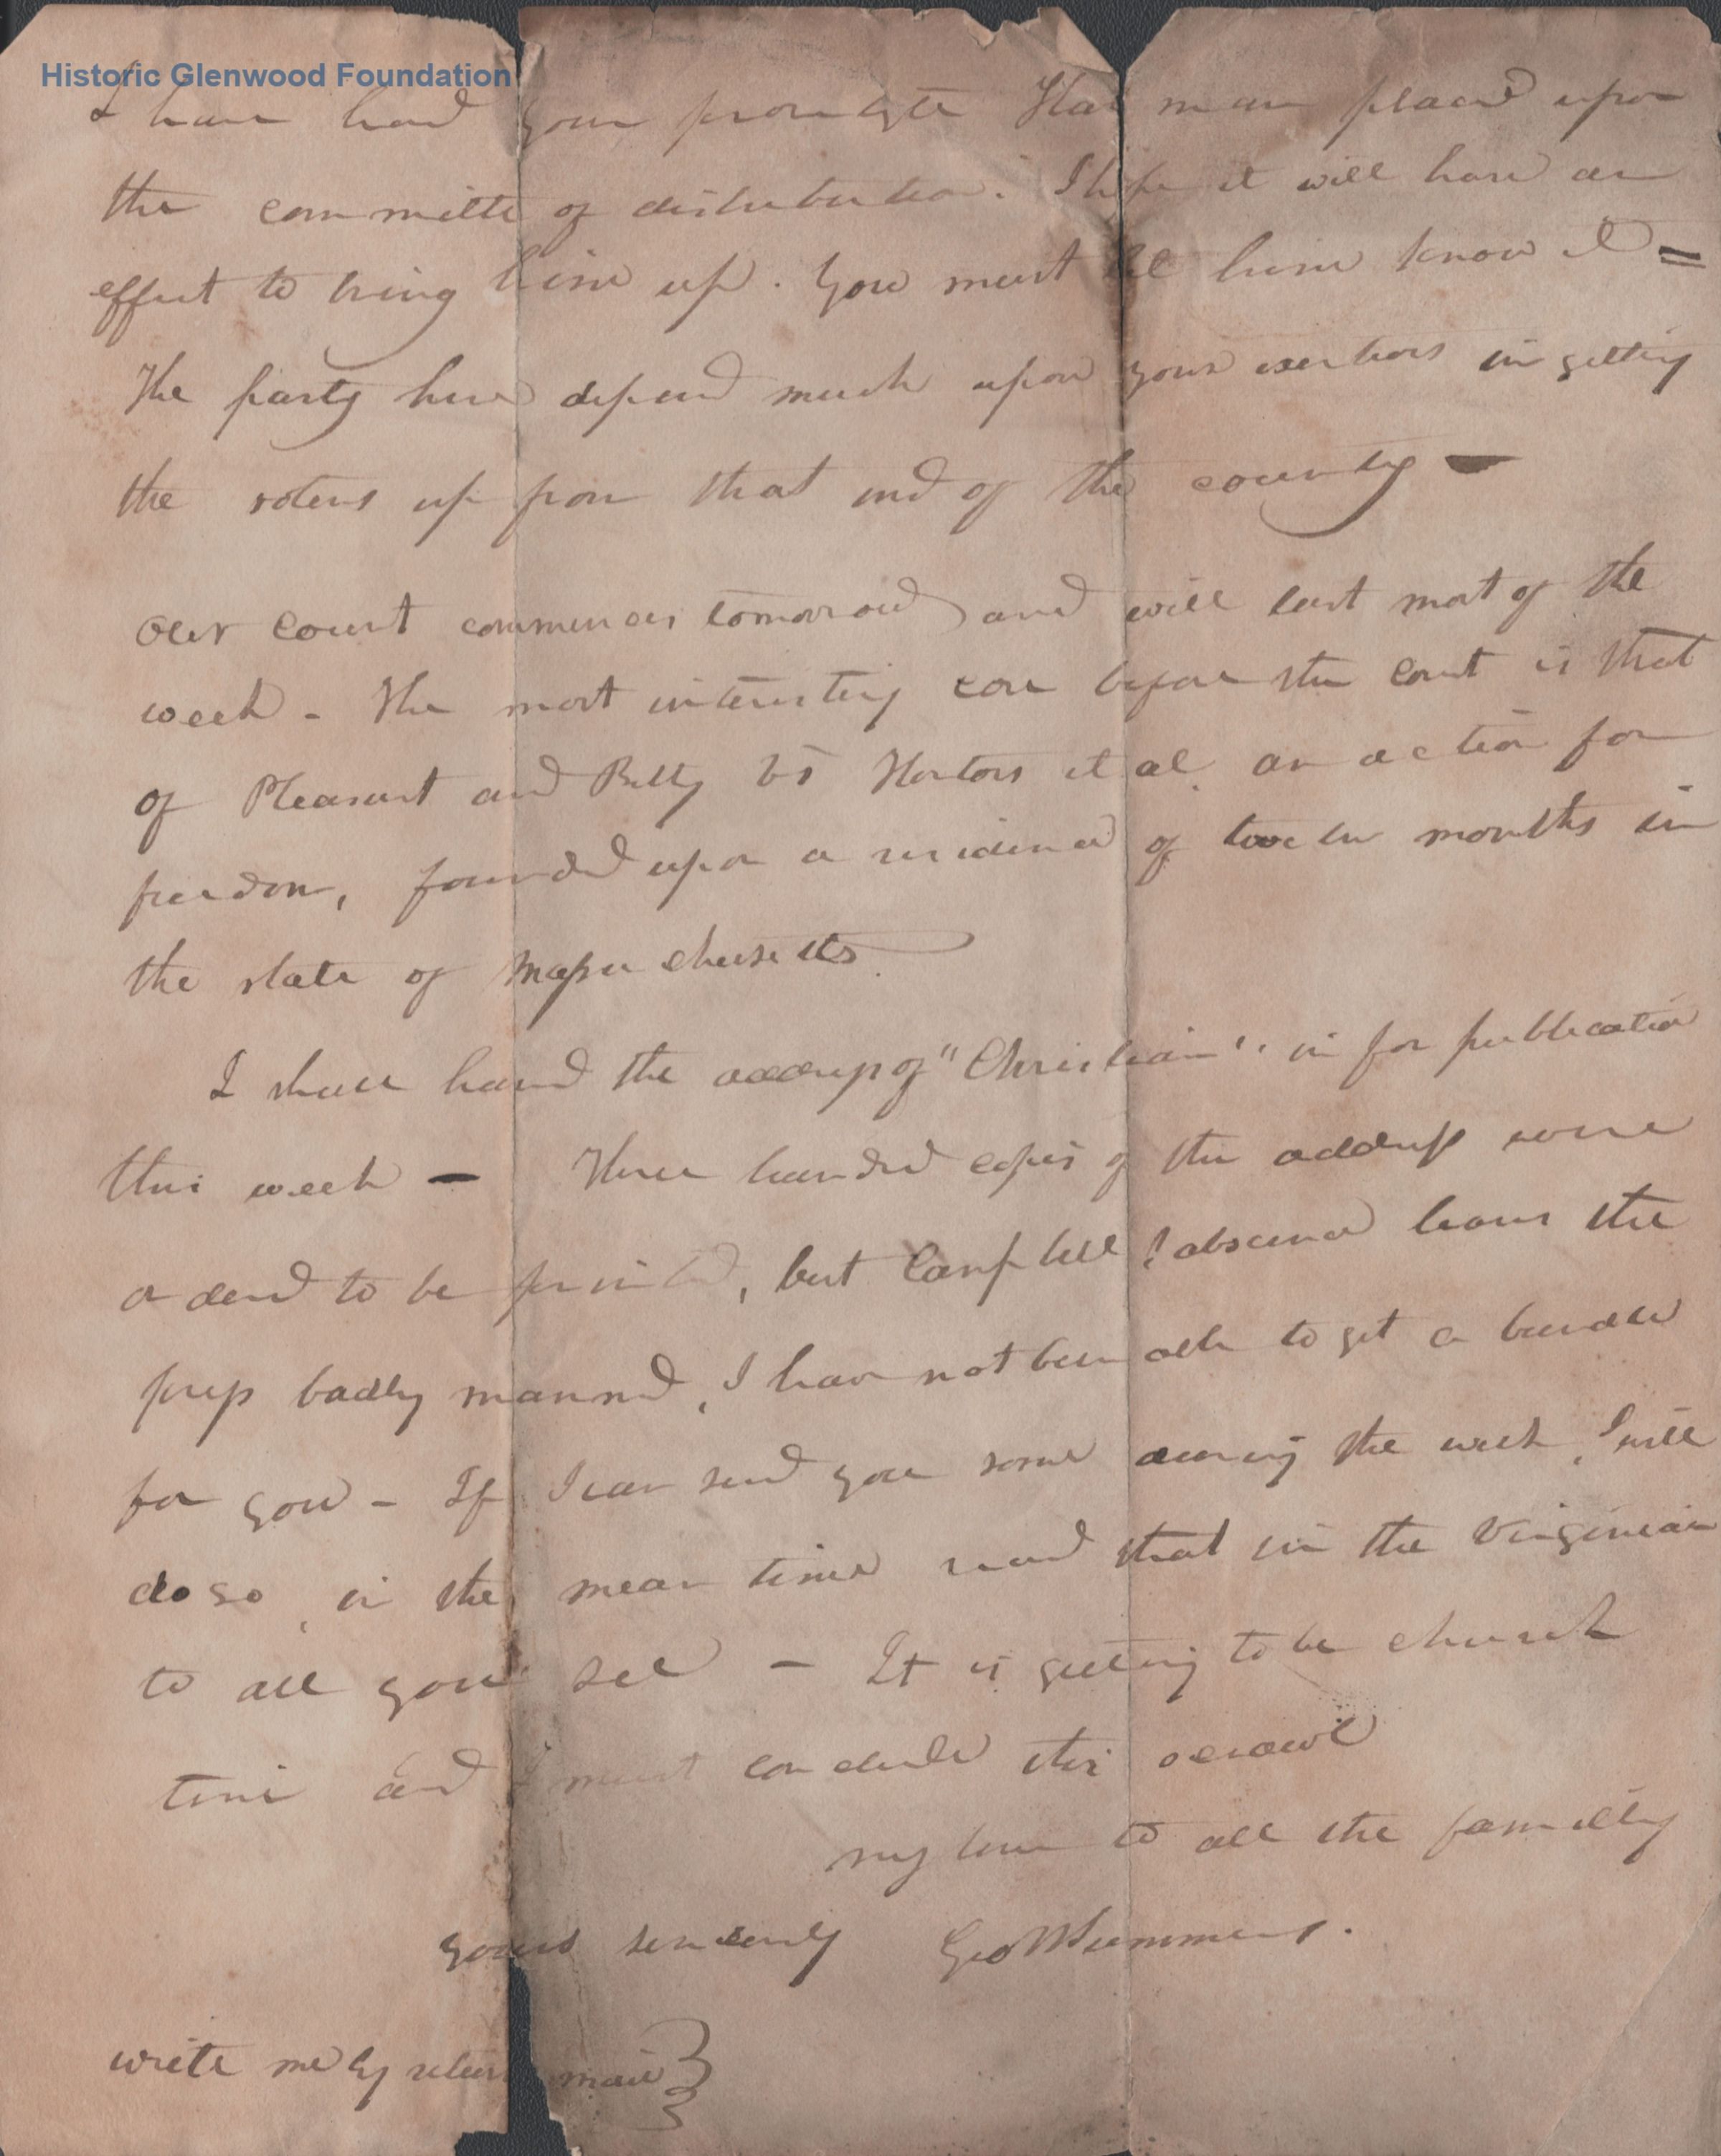 Historic Glenwood Foundation
I have had your proselyte Harman placed upon
the committe of distribution. I hope it will have an
effect to bring him up. You must let him know it =
The party here depend much upon your exertions in getting
the voters up from that end of the county —
Our Court commences tomorrow and will last most of the
week - The most interesting case before the Court is that
of Pleasant and Betty vs et al. an action for
freedom, founded upon a residence of twelve months in
the state of Massachusetts.
I shall hand the address of "Christian" in for publication
this week — Three hundred copies of the address were
ordered to be printed, but Campbell's absence leaves the
press badly manned, I have not been able to get a bundle
for you - If I can send you some during the week, I will
do so, in the mean time read that in the Virginian
to all you see - It is getting to be church
time and I must conclude this scrawl
my love to all the family
yours sincerely Geo W Summers.
write me by return mail